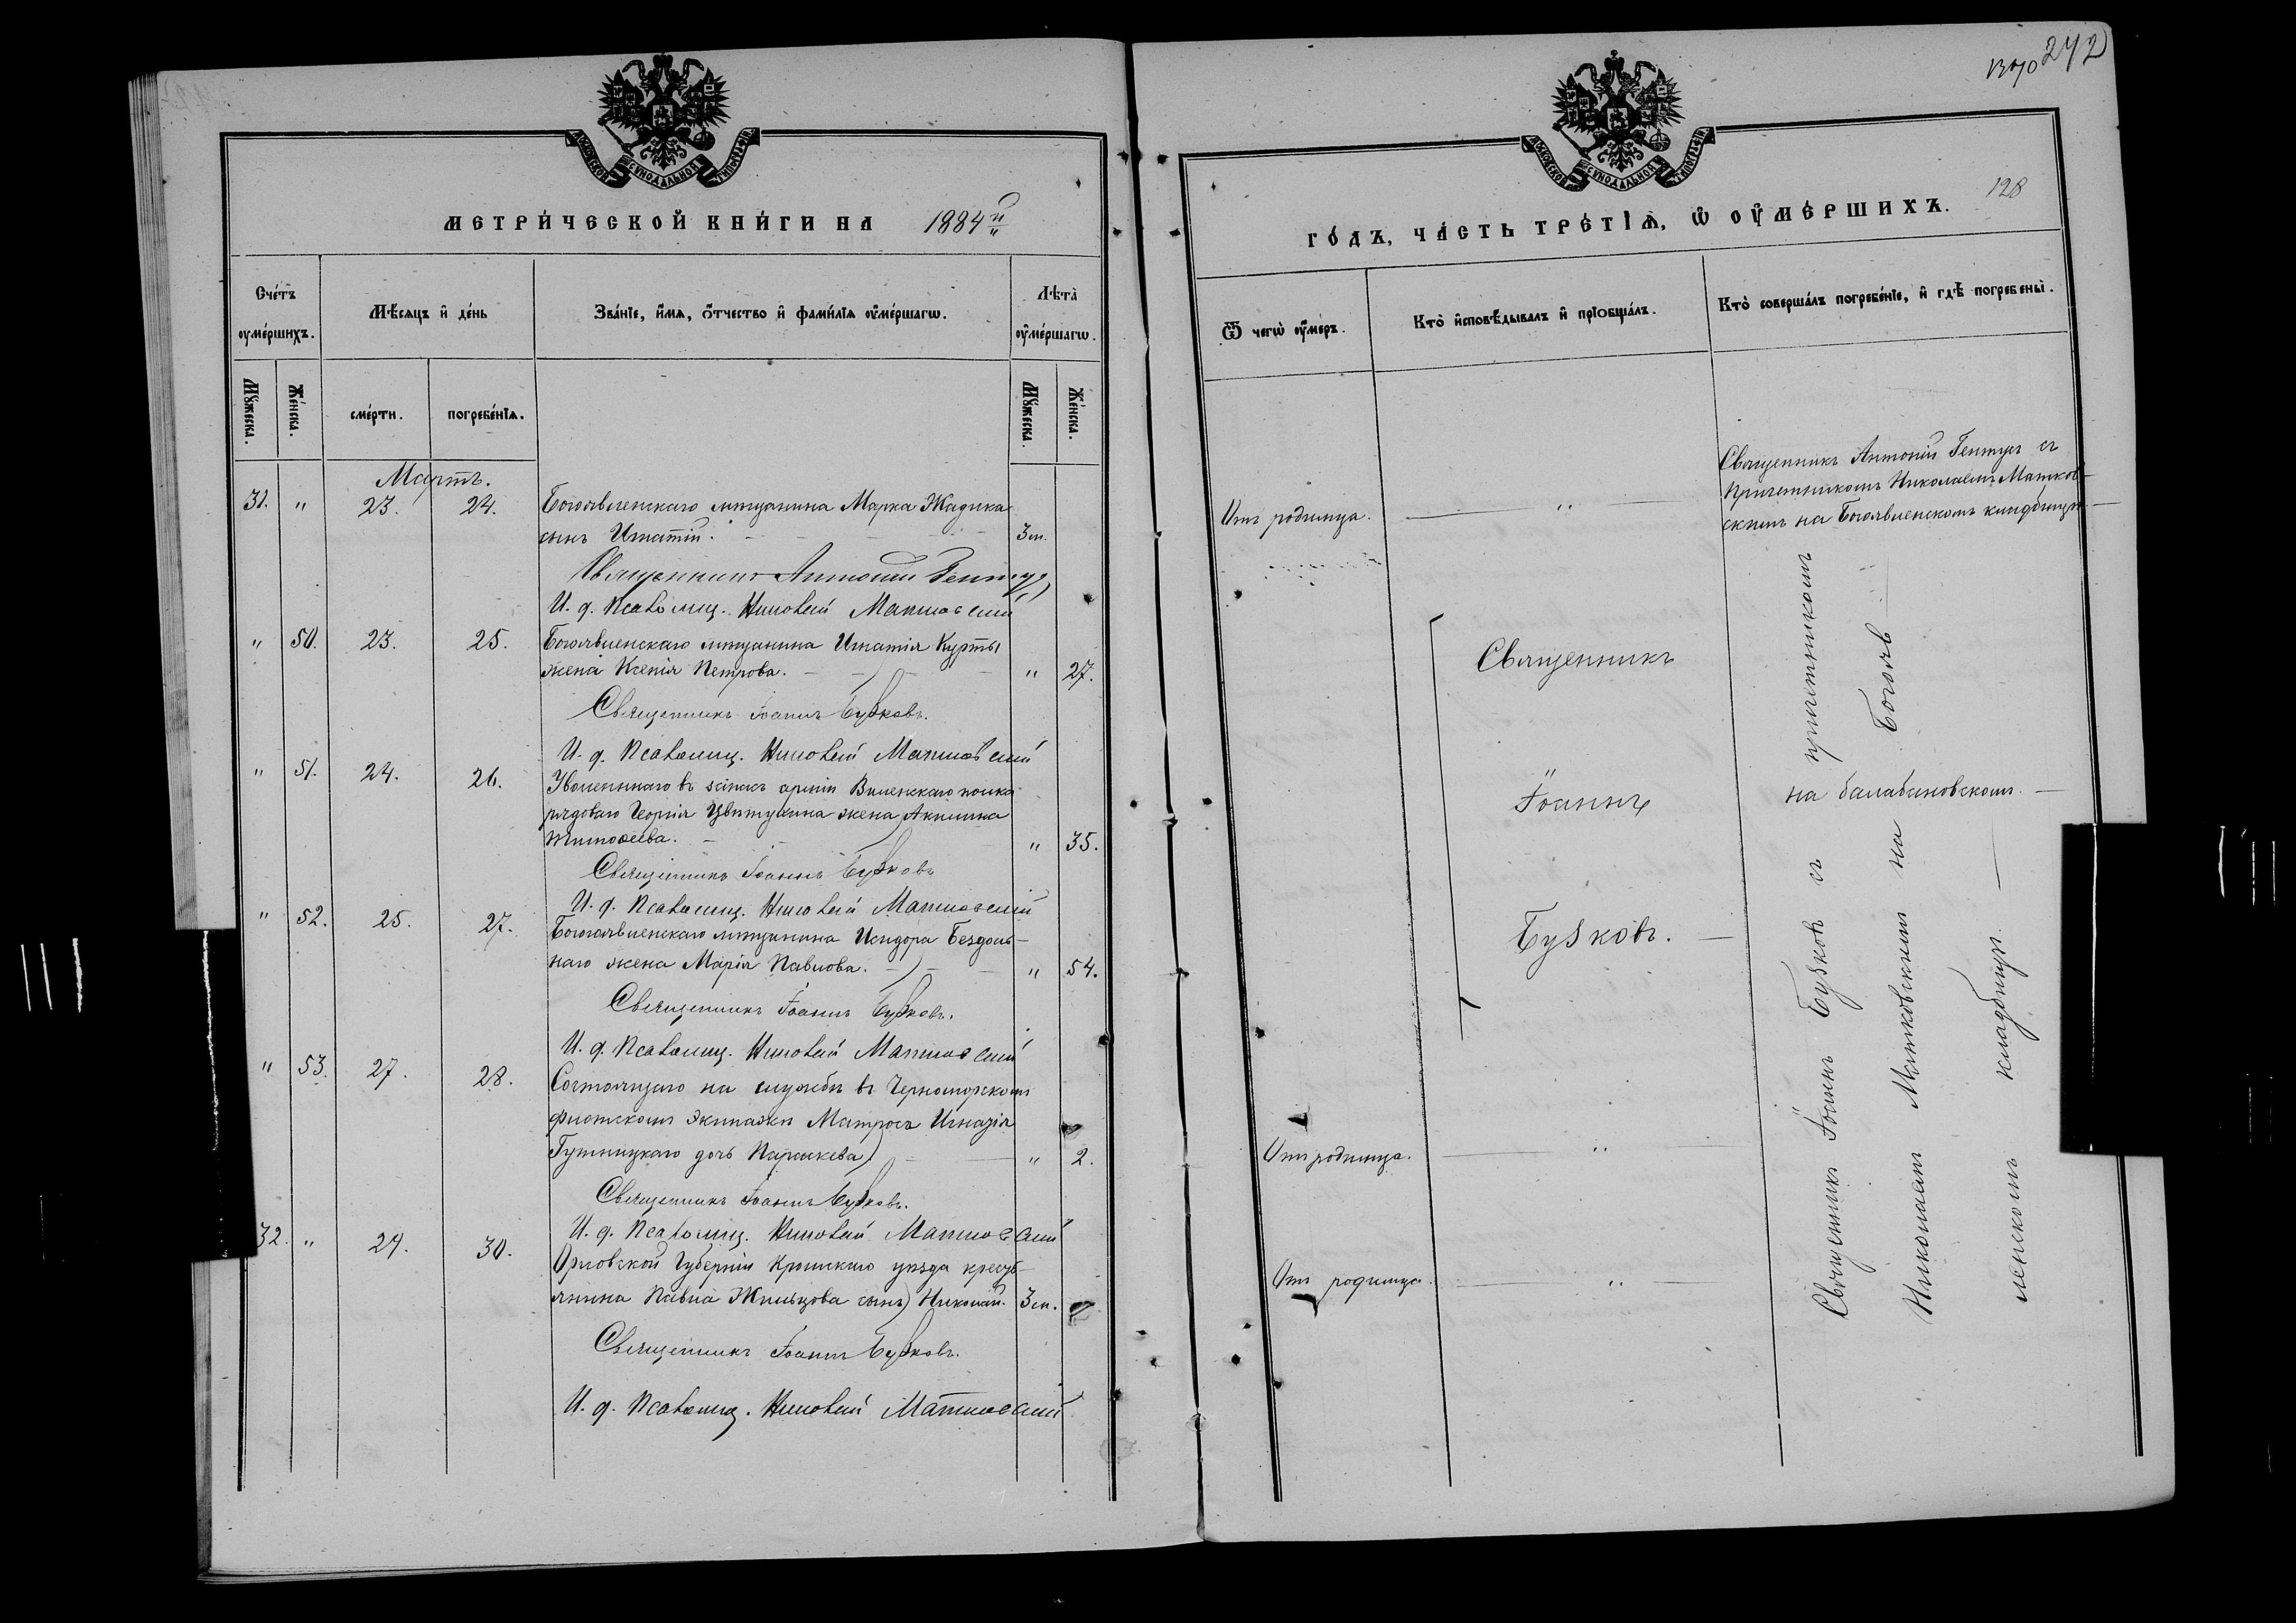 МОСКОВСКОЙ СѴНОДАЛЬНОЙ ТИПОГРАФІИ
МЕТРИЧЕСКОЙ КНИГИ НА 1884й
Счетъ оумершихъ.
Мѣсяцъ и день
Званіе, имя, отчество и фамилія оумершагѡ.
Лѣта оумершагѡ.
Мужеска.
Женска.
смерти.
погребенія.
Мужеска.
Женска.
Мартъ.
31. " 23. 24. Богоявленскаго мѣщанина Марка Жадика
сынъ Игнатій. 3 м.
Священникъ Антоній Гентуръ
И. д. Псаломщ. Николай Матковскій
" 50. 23. 25. Богоявленскаго мѣщанина Игнатія Курты
жена Ксенія Петрова. " 27.
Священникъ Іоаннъ Бузковъ.
И. д. Псаломщ. Николай Матковскій
" 51. 24. 26. Уволеннаго въ запасъ арміи Виленскаго полка
рядоваго Георгія Цвитухина жена Акилина
Тимоѳеева. " 35.
Священникъ Іоаннъ Бузковъ
И. д. Псаломщ. Николай Матковскій
" 52. 25. 27. Богоявленскаго мѣщанина Исидора Бездоль-
наго жена Марія Павлова. " 54.
Священникъ Іоаннъ Бузковъ.
И. д. Псаломщ. Николай Матковскій
" 53. 27. 28. Состоящаго на службѣ въ Черноморскомъ
флотскомъ экипажѣ Матроса Игнатія
Гутницкаго дочь Параскева " 2.
Священникъ Іоаннъ Бузковъ.
И. д. Псаломщ. Николай Матковскій
32. " 29. 30. Орловской Губерніи Кромскаго уѣзда кресть-
янина Павла Жильцова сынъ Николай. 3 м.
Священникъ Іоаннъ Бузковъ.
И. д. Псаломщ. Николай Матковскій
242
128
МОСКОВСКОЙ СѴНОДАЛЬНОЙ ТИПОГРАФІИ
ГОДЪ, ЧАСТЬ ТРЕТІЯ, Ѡ ОУМЕРШИХЪ.
Ѿ чегѡ оумеръ.
Кто исповѣдывалъ и пріобщалъ.
Кто совершалъ погребеніе, и гдѣ погребены.
Отъ родимца. "
Священникъ Антоній Гентуръ съ
Причетникомъ Николаемъ Матков-
скимъ на Богоявленскомъ кладбищѣ
Священникъ
Іоаннъ
Бузковъ.
на балабановскомъ.
Отъ родимца. "
Отъ родимца. "
Священникъ Іоаннъ Бузковъ съ причетникомъ
Николаемъ Матковскимъ на Богояв
ленскомъ кладбищѣ.